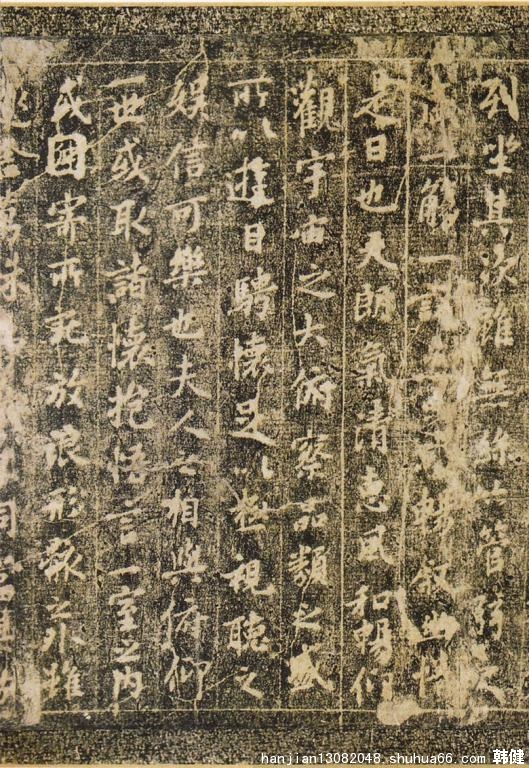 列坐其次雖無絲竹管弦之
盛一觴一詠亦足以暢叙幽情
是日也天朗氣清惠風和暢仰
觀宇宙之大俯察品類之盛
所以遊目騁懷足以極視聽之
娛信可樂也夫人之相與俯仰
一世或取諸懷抱悟言一室之内
或因寄所託放浪形骸之外雖
萬殊同當
hanjian13082048.shuhua66.com 韩健